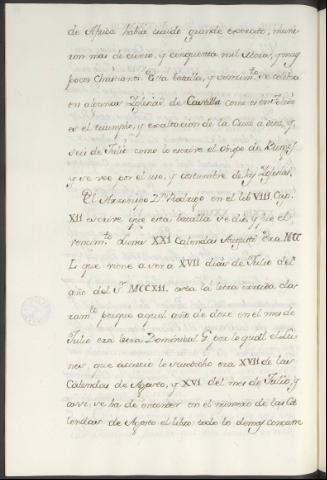 de Africa había traido grande exercito, murie
ron mas de ciento, y cinquenta mil Moros, y muy
pocos Christianos. Esta batalla, y vencim.to se celebra
en algunas Yglesias de Castilla como es en Toledo
es el triumpho, y exaltacion de la Cruz a diez, y
seis de Julio como lo escrive el Obispo de Burgos,
y se vee por el uso, y costumbre de las Yglesias.
El Arzobispo D.n Rodrigo en el lib VIII Cap.
XII escrive que esta batalla se dió, y fue el
vencim.to Lunes XXI Calendas Augusti era MCC
L que viene a ser a XVII dias de Julio del
año del S.r MCCXII. esta la letra errada cla
ram.te porque aquel año de doce en el mes de
Julio era letra Dominical G. por lo qual el Lu
nes, que acaeció lo susodicho era XVII de las
Calendas de Agosto, y XVI del mes de Julio, y
assi se ha de entender en el numero de las Ca
lendas de Agosto el libro: todo lo demas concurre